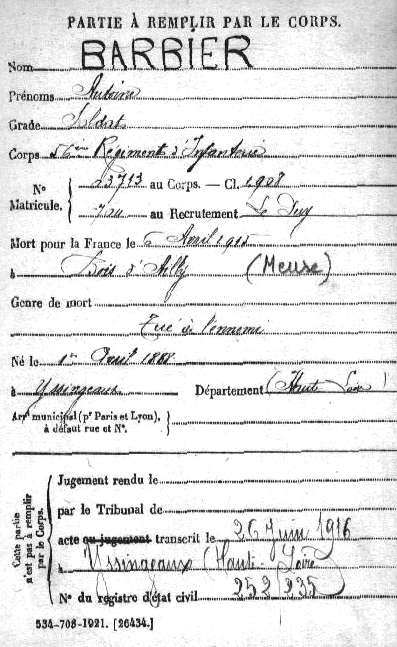 PARTIE À REMPLIR PAR LE CORPS.
Nom BARBIER
Prénoms Antoine
Grade Soldat
Corps 56eme Régiment d'Infanterie
Nº Matricule. 23713 au Corps. — Cl. 1908
au Recrutement Le Puy
Mort pour la France le 5 Avril 1915
à Bois d'Ailly (Meuse)
Genre de mort
Tué à l'ennemi
Né le 1er Avril 1888
à Yssingeaux Département (Haute Loire)
Arrt municipal (pr Paris et Lyon),
à défaut rue et Nº.
Cette partie n'est pas à remplir par le Corps.
Jugement rendu le
par le Tribunal de
acte ou jugement transcrit le 26 Juin 1916
à Yssingeaux (Haute-Loire)
Nº du registre d'état civil 252/235
534-708-1921. [26434.]